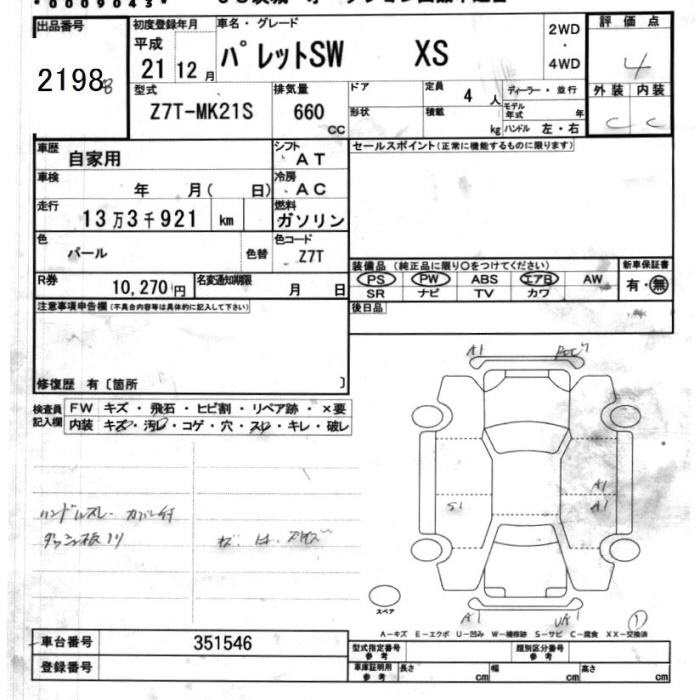 出品番号 初度登録年月 車名・グレード 2WD・4WD 評価点
2198 平成 21 12月 パレットSW XS 4
型式 排気量 ドア 定員 4人 ディーラー・並行 外装 内装
Z7T-MK21S 660 cc 形状 積載 kg モデル年式 年 C C
ハンドル 左・右
車歴 自家用 シフト AT セールスポイント(正常に機能するものに限ります)
車検 年 月( 日) 冷房 AC
走行 13万3千921 km 燃料 ガソリン
色 パール 色替 色コード Z7T
装備品(純正品に限り○をつけてください) 新車保証書
R券 10,270円 名変通知期限 月 日 PS PW ABS エアB AW 有・無
SR ナビ TV カワ
注意事項申告欄(不具合内容等は具体的に記入して下さい) 後日品
修復歴 有〔箇所 〕
検査員記入欄 FW キズ・飛石・ヒビ割・リペア跡・×要
内装 キズ・汚れ・コゲ・穴・スレ・キレ・破レ
A1
A1
S1 A1
ハンドルスレ カバー付
ダッシュ板ノリ
スペア
A1 1
A-キズ E-エクボ U-凹み W-補修跡 S-サビ C-腐食 XX-交換済
車台番号 351546 型式指定番号 参考 類別区分番号 参考
登録番号 車庫証明用 参考 長さ cm 幅 cm 高さ cm